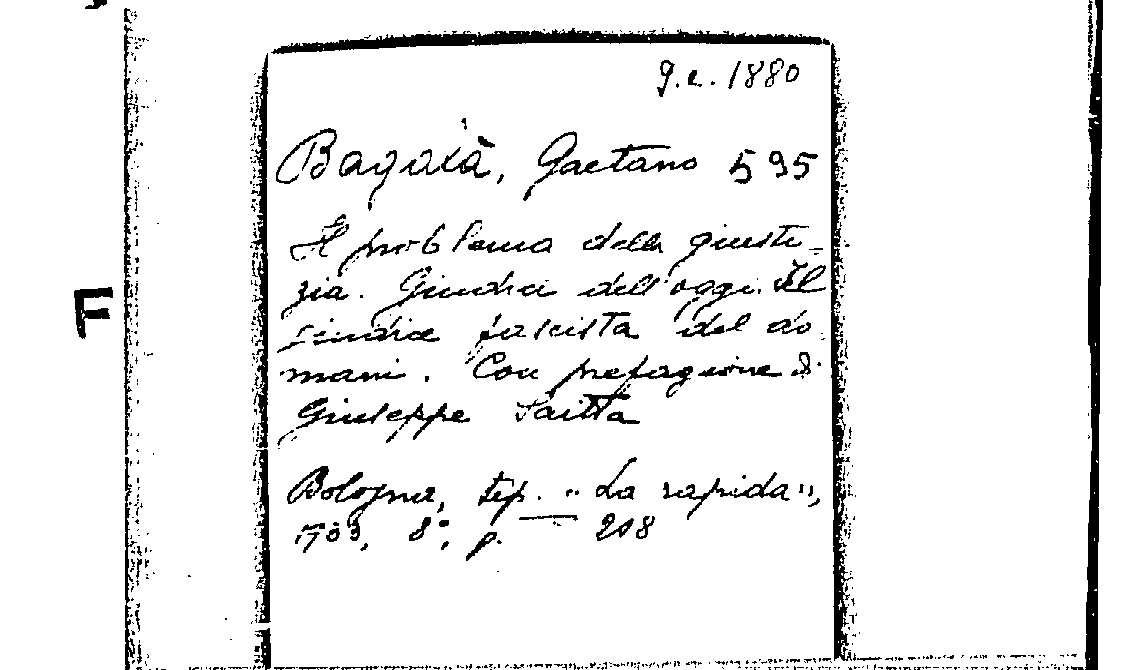 F
9.e. 1880
Bagaià, Gaetano 595
Il problema della giusti-
zia. Giudici dell'oggi. Il
giudice fascista del do
mani. Con prefazione di
Giuseppe Saitta
Bologna, tip. "La rapida",
1933, 8°, p. 208